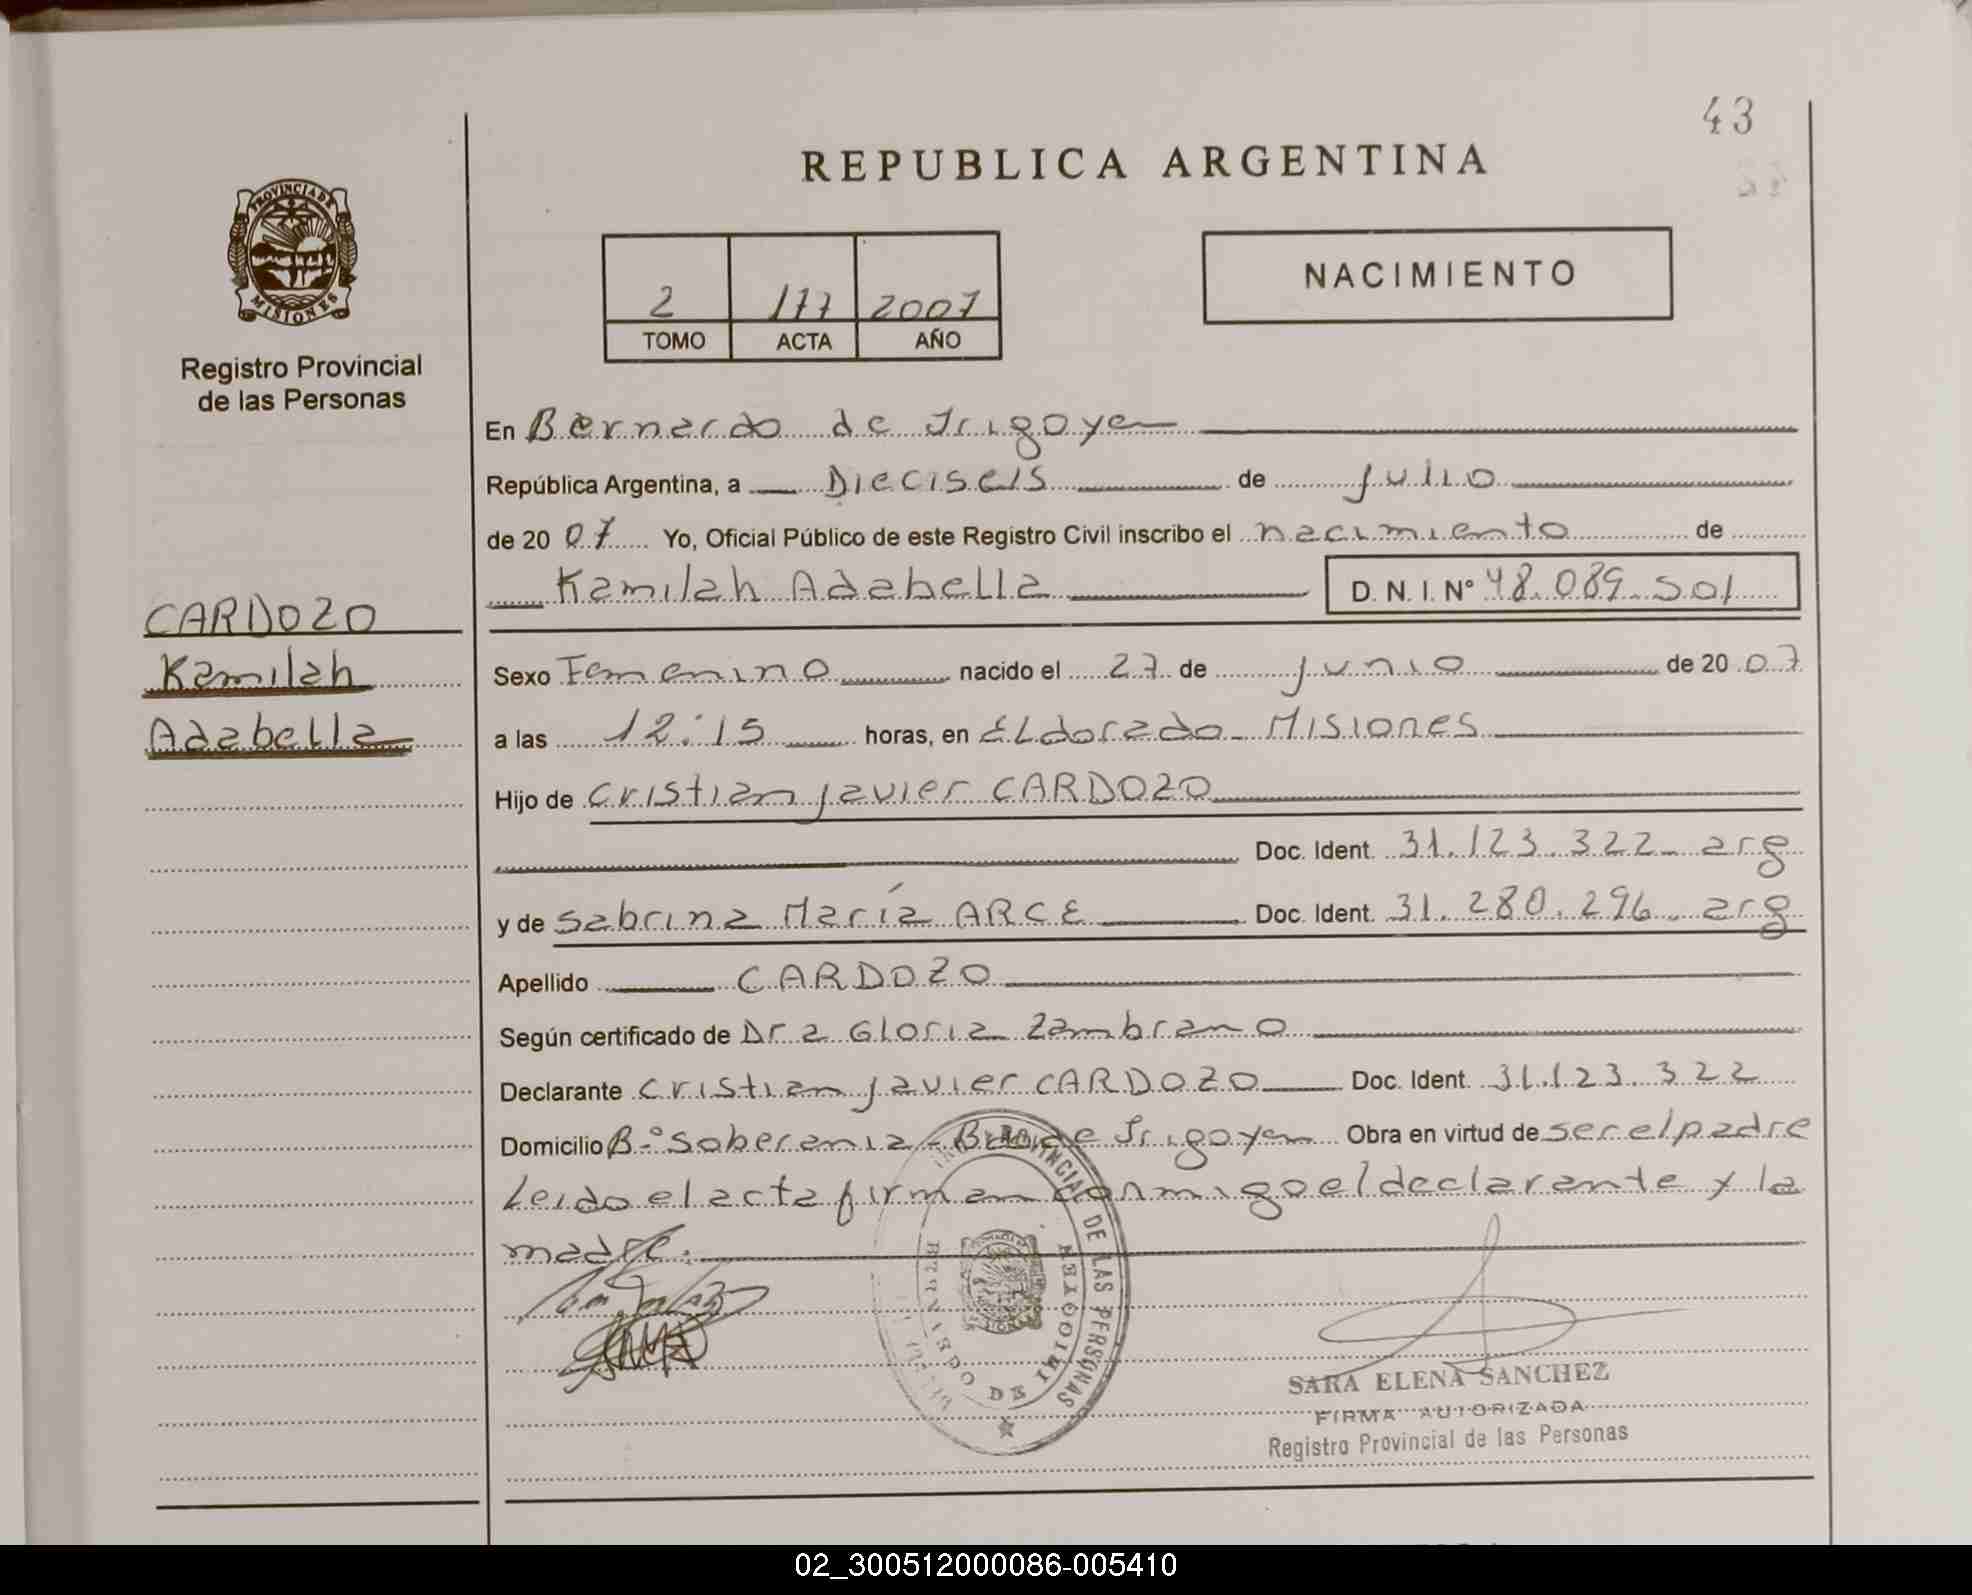 43
REPUBLICA ARGENTINA
PROVINCIA DE
MISIONES
Registro Provincial
de las Personas
2 177 2007
TOMO ACTA AÑO
NACIMIENTO
En Bernardo de Irigoyen
República Argentina, a Dieciseis de julio
de 2007 Yo, Oficial Público de este Registro Civil inscribo el nacimiento de
Kamilah Adabella D. N. I. N° 48.089.501
CARDOZO
Kamilah
Adabella
Sexo Femenino nacido el 27 de junio de 2007
a las 12:15 horas, en ELdorado - Misiones
Hijo de Cristian Javier CARDOZO
Doc. Ident. 31.123.322- arg
y de Sabrina María ARCE Doc. Ident. 31.280.296. arg
Apellido CARDOZO
Según certificado de Dra Gloria Zambrano
Declarante Cristian Javier CARDOZO Doc. Ident. 31.123.322
Domicilio B-° Soberania - Bdo de Irigoyen Obra en virtud de ser el padre
Leido el acta firman conmigo el declarante y la
madre.
PROVINCIAL DE LAS PERSONAS
BERNARDO DE IRIGOYEN
SARA ELENA SANCHEZ
FIRMA AUTORIZADA
Registro Provincial de las Personas
02_300512000086-005410